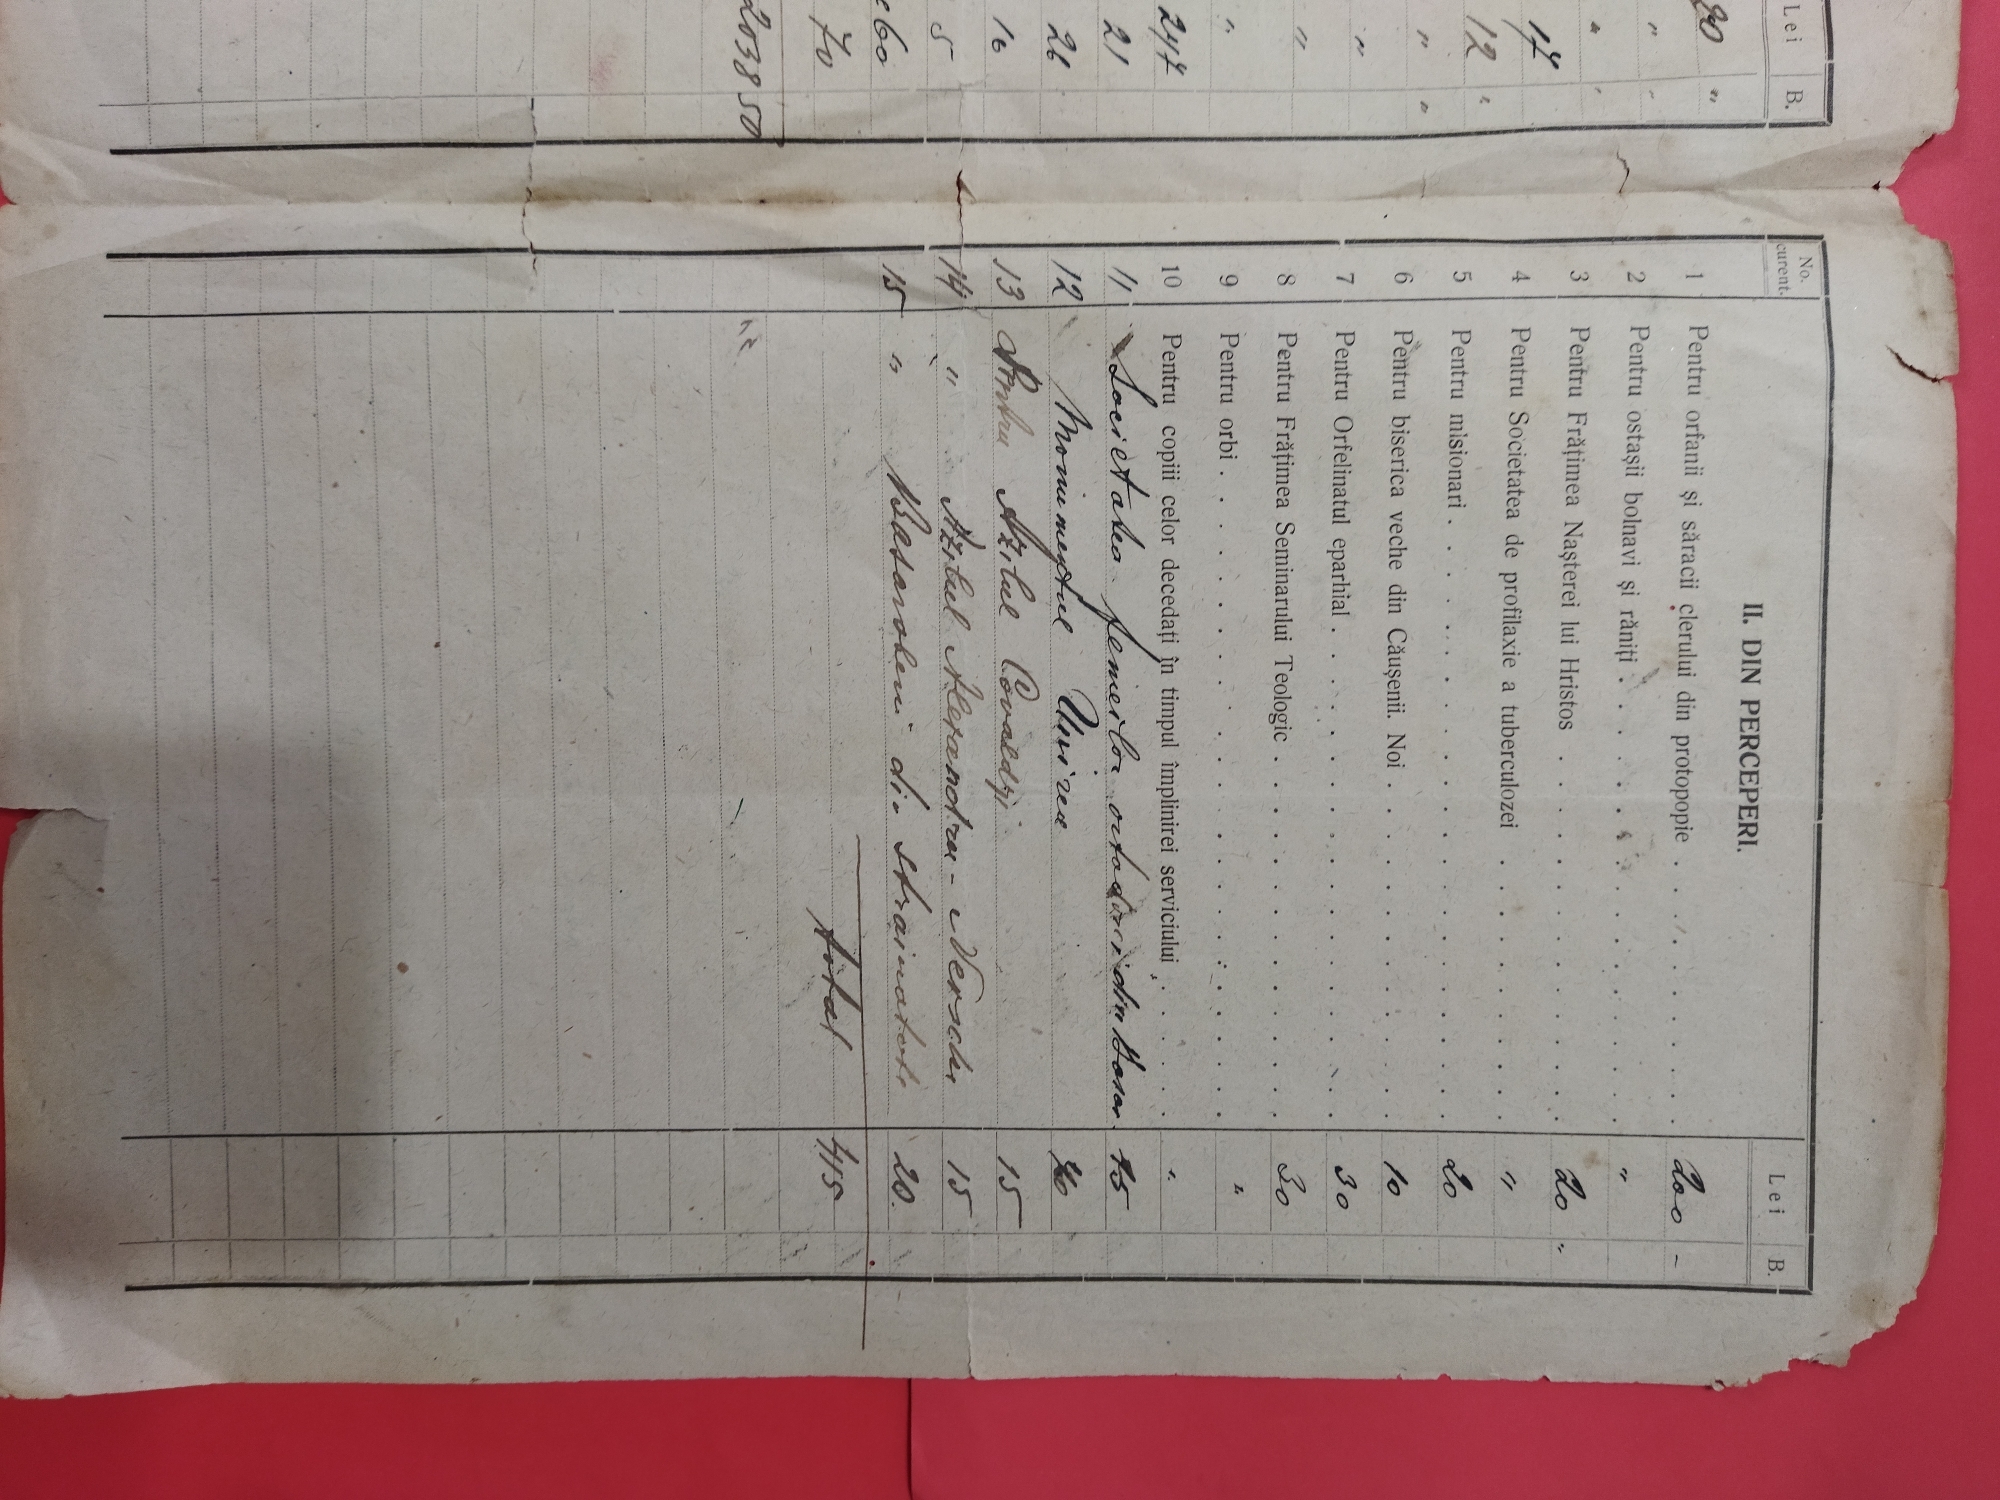 Lei B.
20 " 
" "
" "
14
12 "
" "
"
"
"
244
21
26
16
5
70
2038 50
II. DIN PERCEPERI.
No. curent. Lei B.
1 Pentru orfanii și săracii clerului din protopopie . . . . . . 200 –
2 Pentru ostașii bolnavi și răniți . . . . . . "
3 Pentru Frățimea Nașterei lui Hristos . . . . . . 20 "
4 Pentru Societatea de profilaxie a tuberculozei . . . . . . "
5 Pentru misionari . . . . . . 20
6 Pentru biserica veche din Căușenii. Noi . . . . . . 10
7 Pentru Orfelinatul eparhial . . . . . . 30
8 Pentru Frățimea Seminarului Teologic . . . . . . 30
9 Pentru orbi . . . . . . "
10 Pentru copiii celor decedați în timpul împlinirei serviciului . . . . "
11 Societatea femeilor ortodoxe din Basar. 15
12 Monumentul Unirea
13 Pentru Azilul Covaldji 15
14 " Azilul Alexandru - 15
15 " Basarabeni din străinătate 20.
total 415